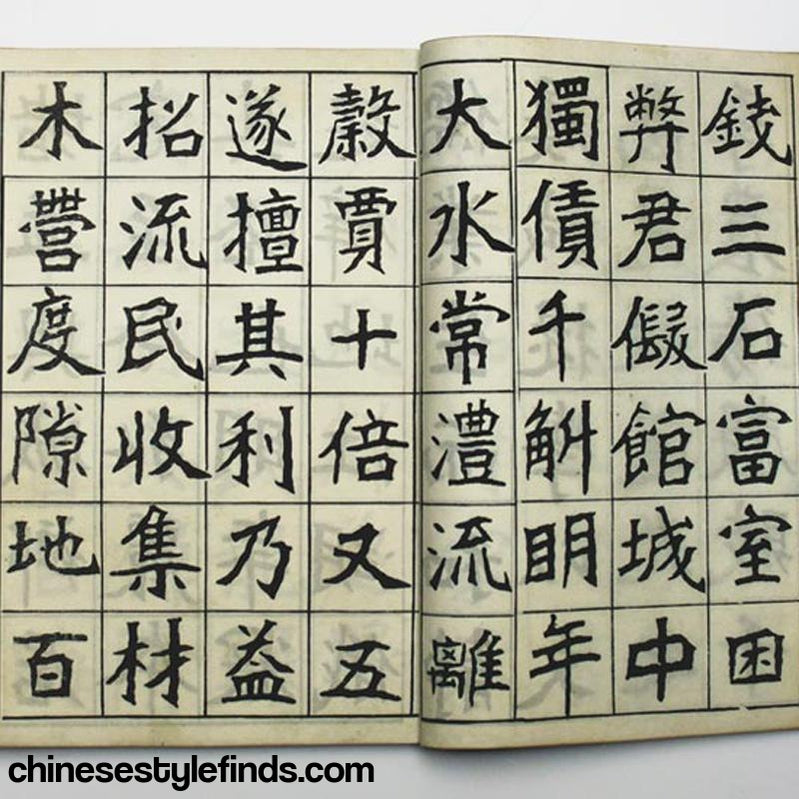 錢三石富室困
弊君儗館城中
獨債千斛明年
大水常澧流離
穀賈十倍又五
遂擅其利乃益
招流民收集材
木營度隙地百
chinesestylefinds.com